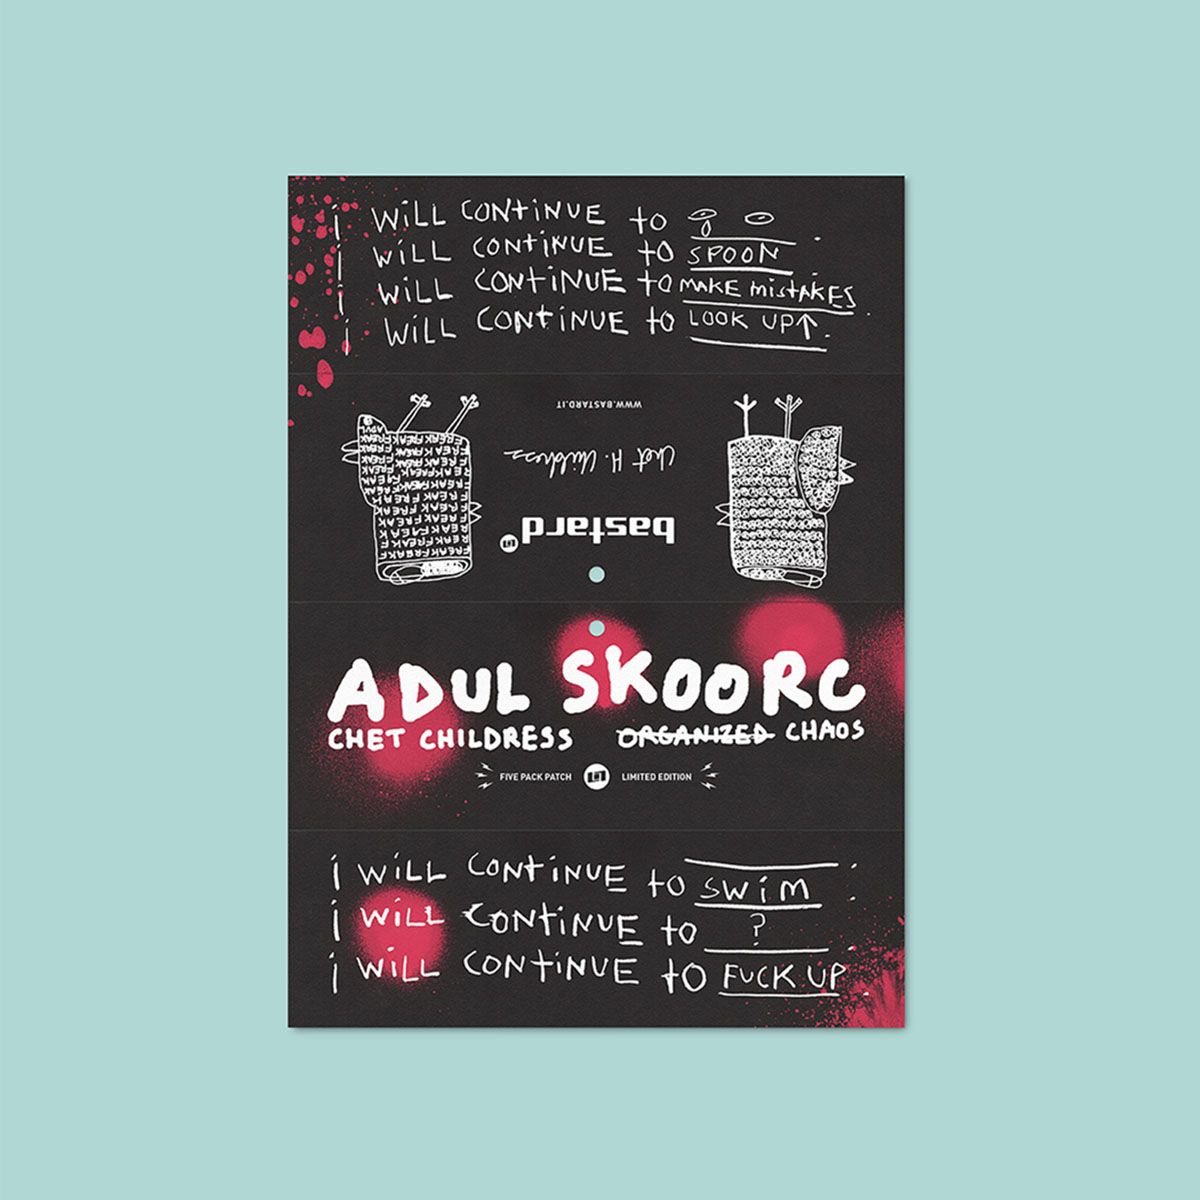 i WiLL CONtiNUE to
i WiLL CONtiNUE to SPOON.
i WiLL CONtiNUE to MAKE MistAKES.
i WiLL CONtiNUE to LOOK UP↑.
WWW.BASTARD.IT
Chet H. Childress
bastard
ADUL
FREAKFREAK
ADUL SKOORC
CHET CHILDRESS ORGANIZED CHAOS
FIVE PACK PATCH LIMITED EDITION
i WiLL CONtiNUE to SWiM.
i WiLL CONtiNUE to ?.
i WiLL CONtiNUE to FUCK UP.